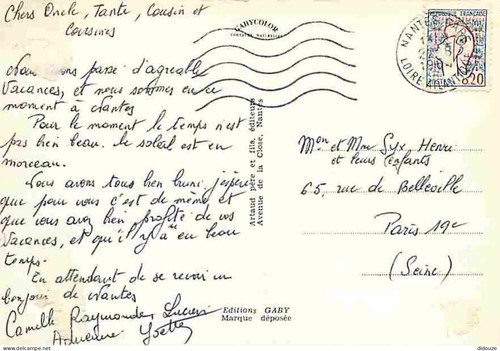 Chers Oncle, Tante, Cousin et
Cousines
Nous avons passé d'agréable
Vacances, et nous sommes en ce
moment à Nantes
Pour le moment le temps n'est
pas bien beau. le soleil est en
morceau.
Nous avons tous bien bruni j'espère
que pour vous c'est de même et
que vous avez bien profité de vos
vacances, et qu'il y a eu beau
temps.
En attendant de se revoir un
bonjour de Nantes
Camille Raymonde Lucien
Yvette
GABYCOLOR
Artaud père et fils, éditeurs
Avenue de la Close, Nantes
Editions GABY
Marque déposée
NANTES
LOIRE ATLANTIQUE
REPUBLIQUE FRANÇAISE
0,20
Mon et Mme Syx, Henri
et leurs enfants
65, rue de Belleville
Paris 19e
(Seine)
https://www.delcampe.net
didouze